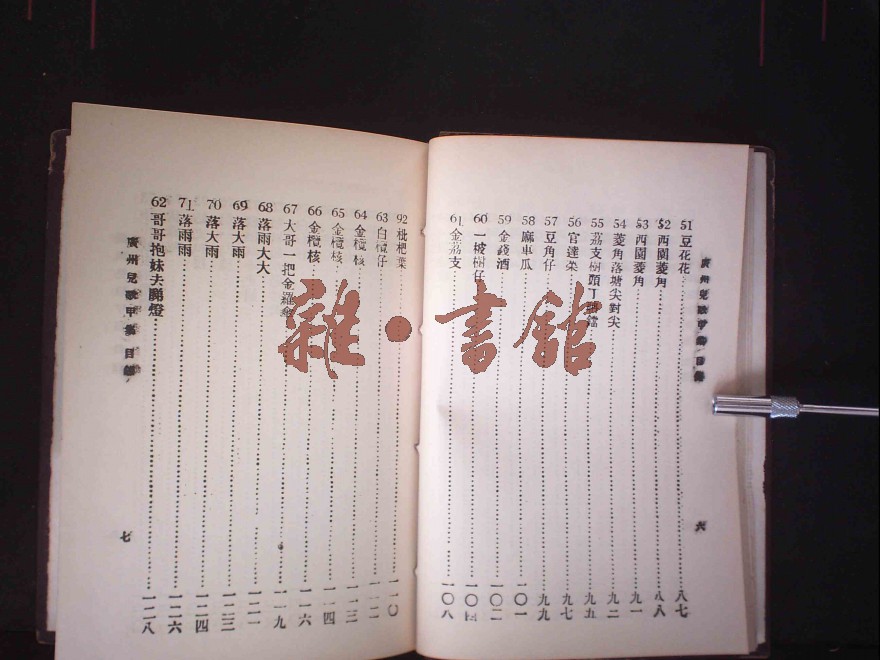 廣州兒歌甲集 目錄
51 豆花花……八七
52 西園菱角……八八
53 西園菱角……九一
54 菱角落塘尖對尖……九二
55 荔支樹頭丁……九五
56 官達菜……九七
57 豆角仔……九九
58 麻車瓜……一〇一
59 金錢酒……一〇二
60 一坡樹仔……一〇四
61 金荔支……一〇八
六
92 枇杷葉……一一〇
63 白欖仔……一一二
64 金欖核……一一三
65 金欖核……一一四
66 金欖核……一一六
67 大哥一把金羅傘……一一九
68 落雨大大……一二一
69 落大雨……一二三
70 落大雨……一二四
71 落雨雨……一二六
62 哥哥抱妹去睇燈……一二八
廣州兒歌甲集 目錄
七
雜·書館